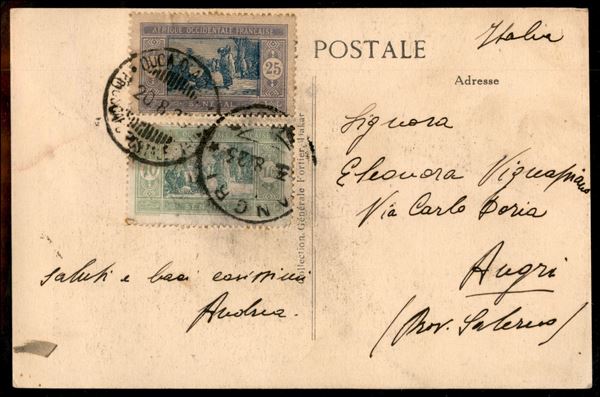 AFRIQUE OCCIDENTALE FRANÇAISE
25
SÉNÉGAL
POSTALE
Italia
Adresse
Signora
Eleonora
Via Carlo Doria
Angri
(Prov. Salerno)
ANGRI
Collection Générale Fortier, Dakar
Saluti e baci carissimi
Andrea.